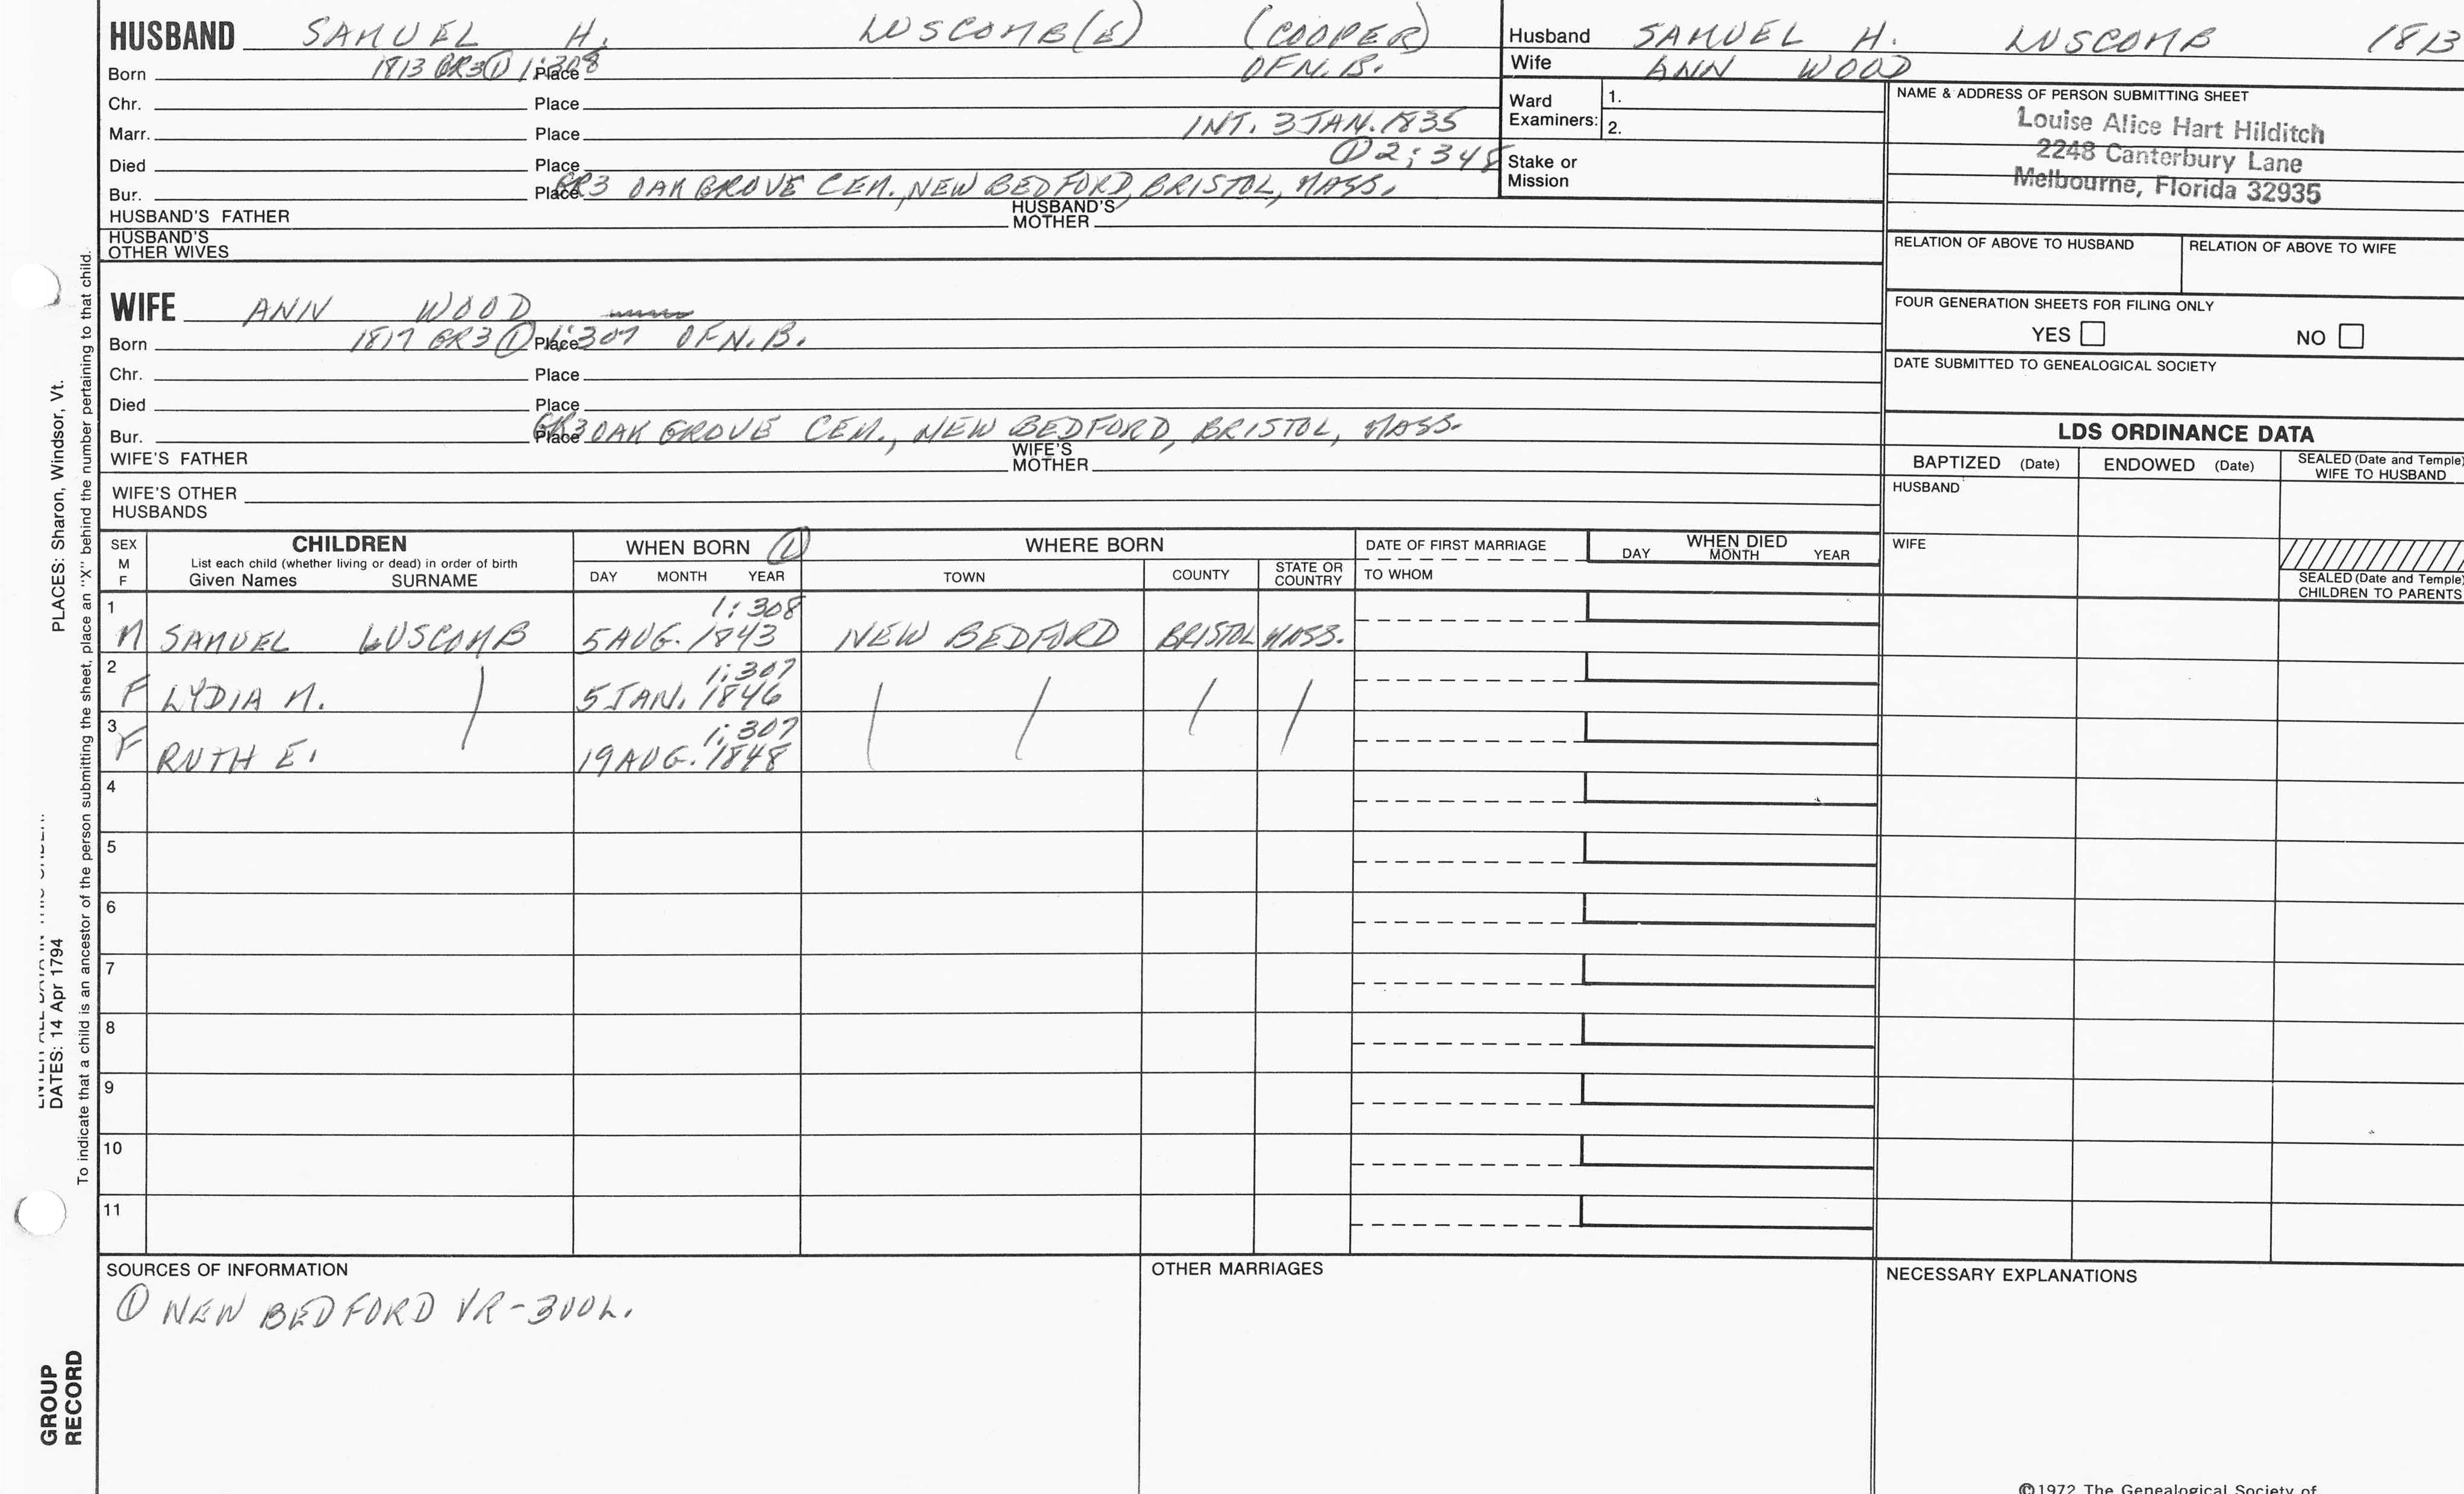 HUSBAND SAMUEL H. LUSCOMB(E) (COOPER)
Born 1813 GR3 ① 1:308 Place OF N.B.
Chr. Place
Marr. Place INT. 3 JAN. 1835
① 2:348
Died Place
Bur. Place GR3 OAK GROVE CEM., NEW BEDFORD, BRISTOL, MASS.
HUSBAND'S FATHER HUSBAND'S MOTHER
HUSBAND'S OTHER WIVES
Husband SAMUEL H. LUSCOMB 1813
Wife ANN WOOD
Ward Examiners: 1.
2.
Stake or Mission
NAME & ADDRESS OF PERSON SUBMITTING SHEET
Louise Alice Hart Hilditch
2248 Canterbury Lane
Melbourne, Florida 32935
RELATION OF ABOVE TO HUSBAND RELATION OF ABOVE TO WIFE
FOUR GENERATION SHEETS FOR FILING ONLY
YES NO
DATE SUBMITTED TO GENEALOGICAL SOCIETY
WIFE ANN WOOD
Born 1817 GR3 ① 1:307 Place OF N.B.
Chr. Place
Died Place
Bur. Place GR3 OAK GROVE CEM., NEW BEDFORD, BRISTOL, MASS.
WIFE'S FATHER WIFE'S MOTHER
WIFE'S OTHER HUSBANDS
LDS ORDINANCE DATA
BAPTIZED (Date) ENDOWED (Date) SEALED (Date and Temple) WIFE TO HUSBAND
HUSBAND
WIFE
SEALED (Date and Temple) CHILDREN TO PARENTS
SEX M F
CHILDREN
List each child (whether living or dead) in order of birth
Given Names SURNAME
WHEN BORN ①
DAY MONTH YEAR
WHERE BORN
TOWN COUNTY STATE OR COUNTRY
DATE OF FIRST MARRIAGE
TO WHOM
WHEN DIED
DAY MONTH YEAR
1 1:308
M SAMUEL LUSCOMB 5 AUG. 1843 NEW BEDFORD BRISTOL MASS.
2 1:307
F LYDIA M. 5 JAN. 1846
3 1:307
F RUTH E. 19 AUG. 1848
4
5
6
7
8
9
10
11
SOURCES OF INFORMATION
① NEW BEDFORD VR-
OTHER MARRIAGES
NECESSARY EXPLANATIONS
©1972 The Genealogical Society of
PLACES: Sharon, Windsor, Vt.
DATES: 14 Apr 1794
To indicate that a child is an ancestor of the person submitting the sheet, place an "X" behind the number pertaining to that child.
GROUP
RECORD